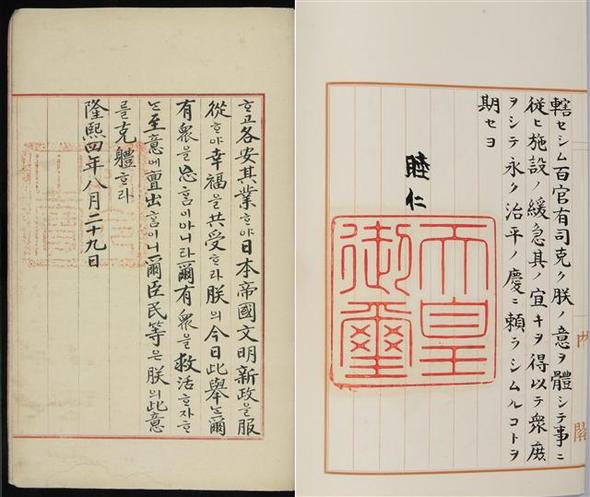 ᄒᆞ고各安其業ᄒᆞ야日本帝國文明新政을服
從ᄒᆞ야幸福을共受ᄒᆞ라朕의今日此擧ᄂᆞᆫ爾
有衆을忘홈이아니라爾有衆을救活ᄒᆞ자ᄒᆞ
ᄂᆞᆫ至意에亶出홈이니爾臣民等은朕의此意
를克體ᄒᆞ라
隆熙四年八月二十九日
轄セシム百官有司克ク朕ノ意ヲ體シテ事ニ
從ヒ施設ノ緩急其ノ宜キヲ得以テ衆庶
ヲシテ永ク治平ノ慶ニ頼ラシムルコトヲ
期セヨ
睦仁
天皇
御璽
内閣